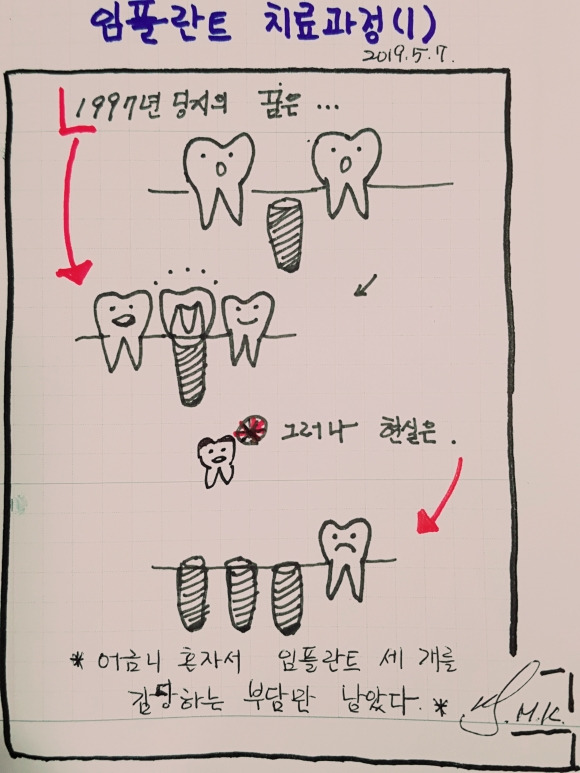 임플란트 치료과정(1)
2019.5.7.
1997년 당시의 꿈은 ...
그러나 현실은.
* 어금니 혼자서 임플란트 세 개를
감당하는 부담만 남았다. *
M.K.